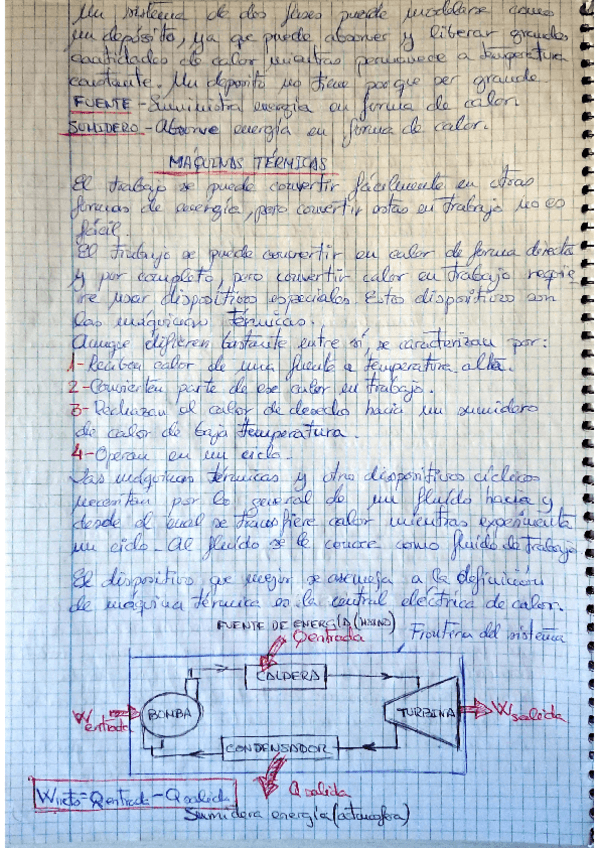 Un sistema de dos fases puede modelarse como
un depósito, ya que puede absorver y liberar grandes
cantidades de calor mientras permanece a temperatura
constante. Un deposito no tiene porque ser grande
FUENTE - Suministra energía en forma de calor.
SUMIDERO - Absorve energía en forma de calor.
MÁQUINAS TÉRMICAS
El trabajo se puede convertir fácilmente en otras
formas de energía, pero convertir estas en trabajo no es
fácil.
El trabajo se puede convertir en calor de forma directa
y por completo, pero convertir calor en trabajo requie
re usar dispositivos especiales. Estos dispositivos son
las máquinas térmicas.
Aunque difieren bastante entre sí, se caracterizan por:
1- Reciben calor de una fuente a temperatura alta.
2- Convierten parte de ese calor en trabajo.
3- Rechazan el calor de desecho hacia un sumidero
de calor de baja temperatura.
4- Operan en un ciclo.
Las máquinas térmicas y otros dispositivos cíclicos
necesitan por lo general de un fluído hacia y
desde el cual se transfiere calor mientras experimenta
un ciclo. Al fluído se le conoce como fluido de trabajo
El dispositivo que mejor se asemeja a la definición
de máquina térmica es la central eléctrica de calor.
FUENTE DE ENERGÍA (HORNO)
Qentrada
Frontera del sistema
CALDERA
Wentrada
BOMBA
TURBINA
Wsalida
CONDENSADOR
Qsalida
Wneto = Qentrada - Qsalida
Sumidero energía (atmosfera)